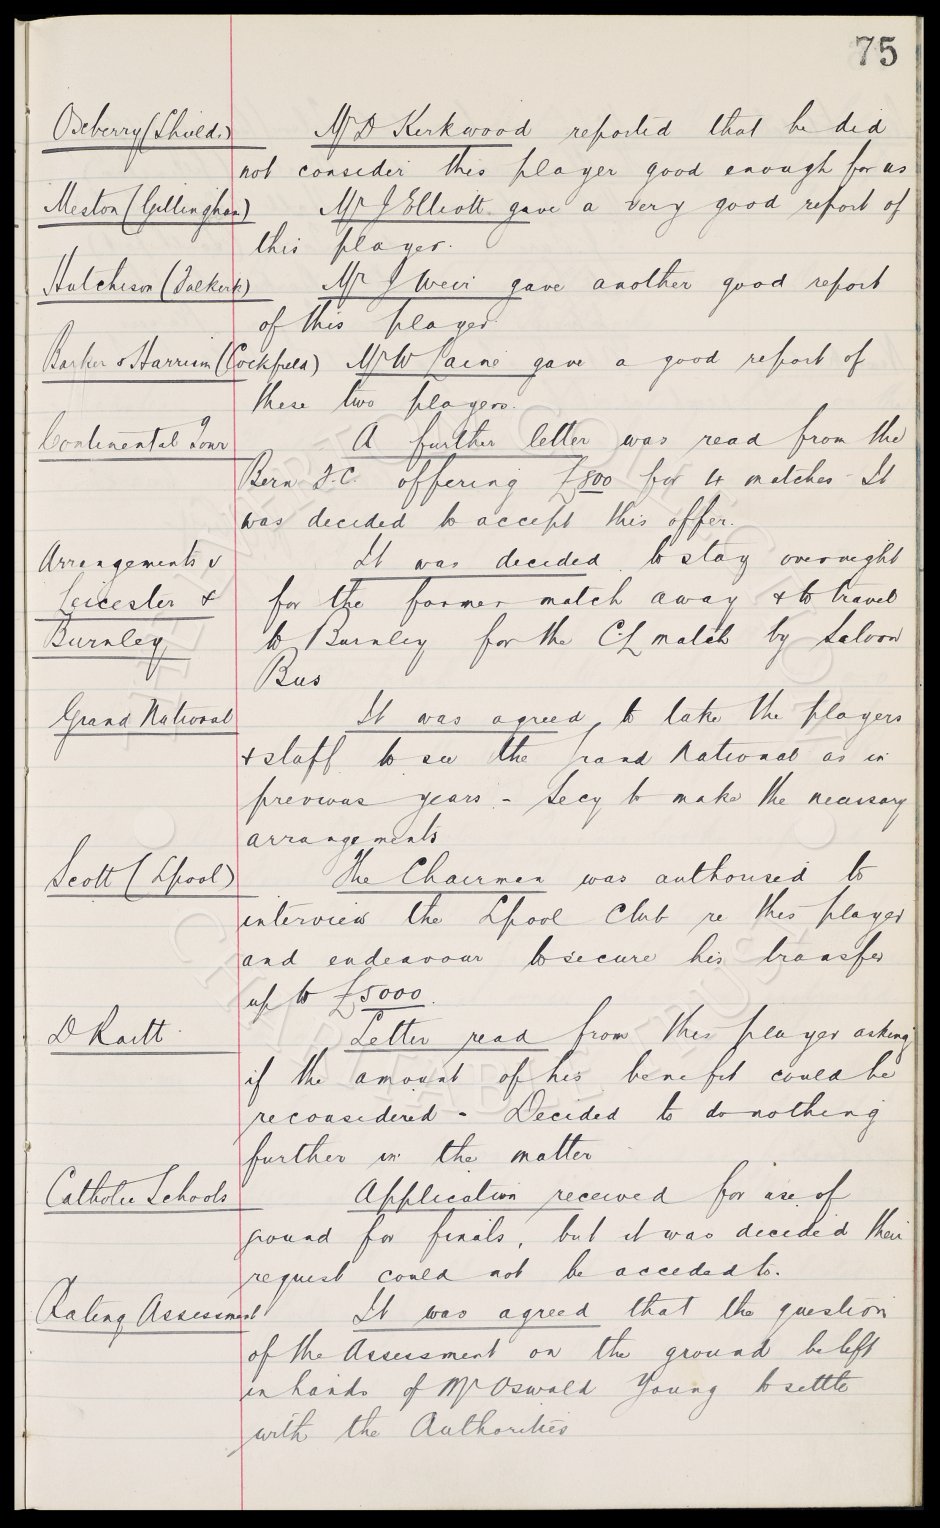 75
Oxberry (Shields) Mr D Kirkwood reported that he did
not consider this player good enough for us
Meston (Gillingham) Mr J Elliott gave a very good report of
this player.
Hutchison (Falkirk) Mr J Weir gave another good report
of this player.
Barker & Harrison (Cockfield) Mr W gave a good report of
these two players.
Continental Tour A further letter was read from the
Bern F.C. offering £800 for 4 matches - It
was decided to accept this offer.
Arrangements v It was decided to stay overnight
Leicester & for the former match away & to travel
Burnley to Burnley for the C.L match by Saloon
Bus
Grand National It was agreed to take the players
& staff to see the Grand National as in
previous years - Secy to make the necessary
arrangements
Scott (Lpool) The Chairman was authorised to
interview the Lpool Club re this player
and endeavour to secure his transfer
up to £5000.
D Raitt Letter read from this player asking
if the amount of his benefit could be
reconsidered - Decided to do nothing
further in the matter
Catholic Schools Application received for use of
ground for finals, but it was decided their
request could not be acceded to.
Rating Assessment It was agreed that the question
of the Assessment on the ground be left
in hands of Mr Oswald Young to settle
with the Authorities